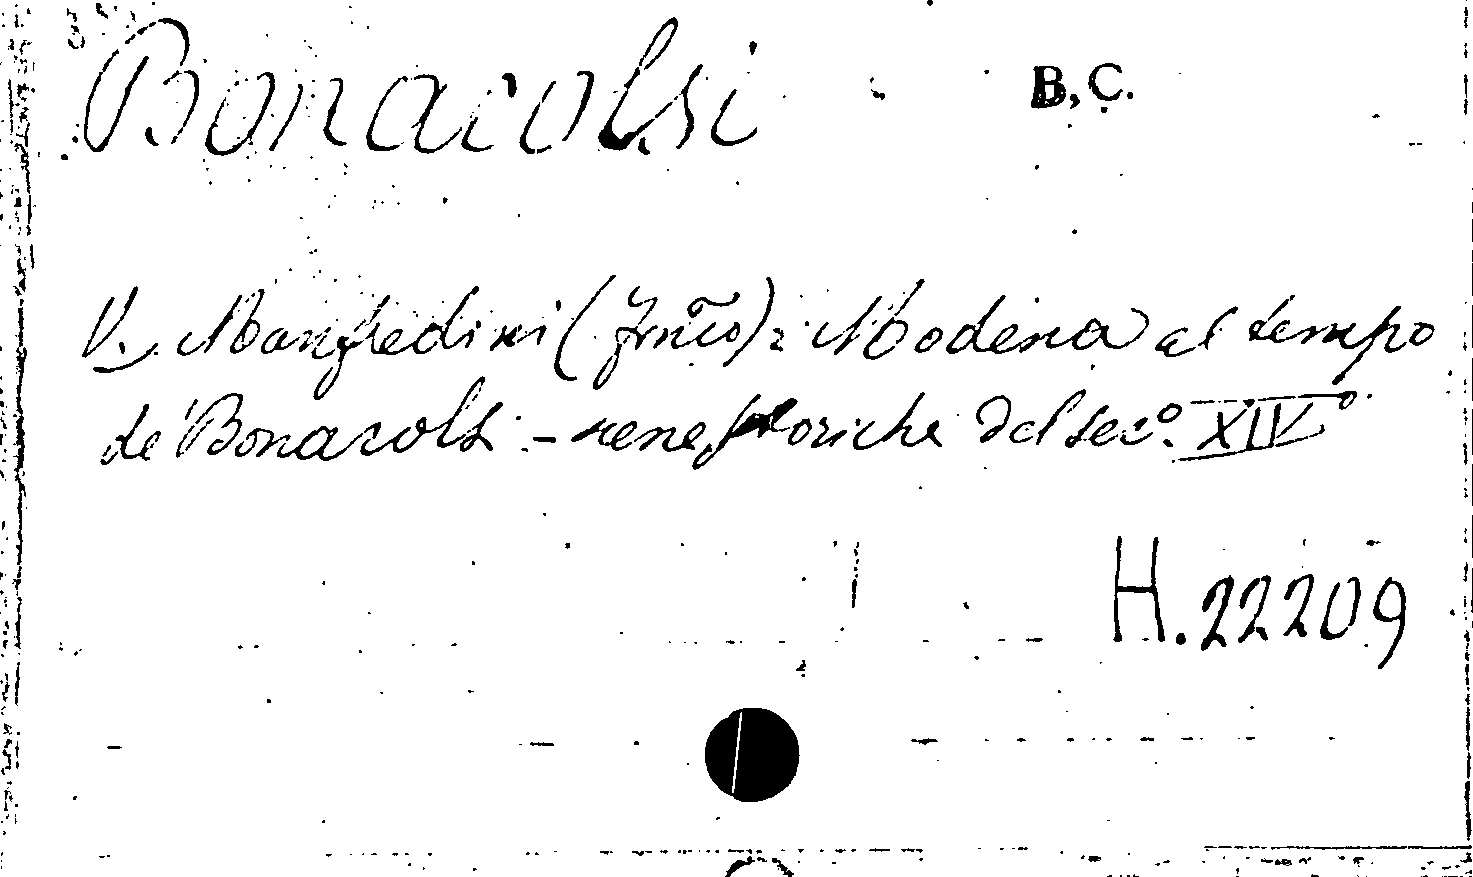 Bonacolsi
B. C.
V. Manfredini (Frñco): Modena al tempo
de' Bonacolsi - scene storiche del sec.º XIVº
H. 22209